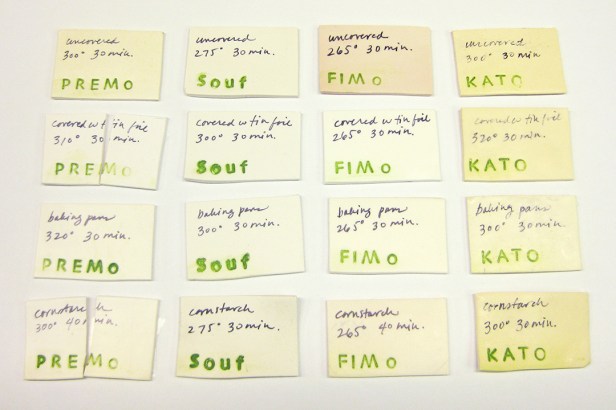 uncovered
300° 30 min.
PREMO
uncovered
275° 30 min.
Souf
uncovered
265° 30 min.
FIMO
uncovered
300° 30 min
KATO
covered w tin foil
310° 30 min.
PREMO
covered w tin foil
300° 30 min.
Souf
covered w tin foil
265° 30 min.
FIMO
covered w tin foil
320° 30 min.
KATO
baking pans
320° 30 min.
PREMO
baking pans
300° 30 min.
Souf
baking pans
265° 30 min.
FIMO
baking pans
300° 30 min.
KATO
cornstarch
300° 40 min.
PREMO
cornstarch
275° 30 min.
Souf
cornstarch
265° 40 min.
FIMO
cornstarch
300° 30 min.
KATO